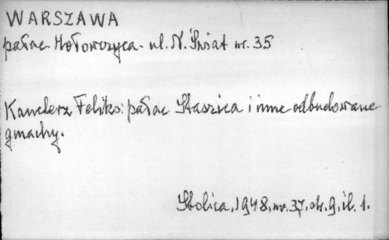 WARSZAWA
pałac Hołowczyca - ul. N. Świat nr. 35
Kanclerz Feliks: pałac Staszica i inne odbudowane
gmachy.
Stolica, 1948, nr. 37, str. 9, il. 1.